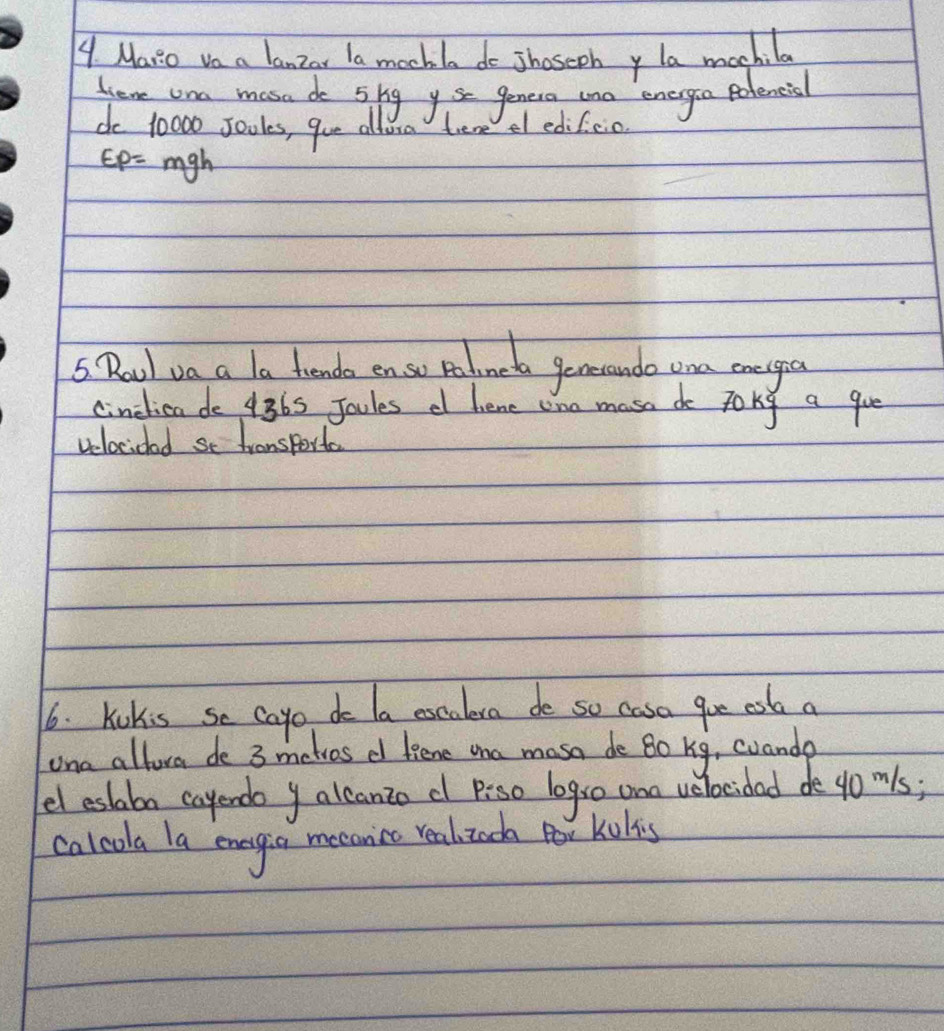 4. Mario va a lanzar la mochila de Jhoseph y la mochila
tiene una masa de 5 kg y se genera una energia potencial
de 10000 Joules, que altura tiene el edificio.
EP= mgh
5. Raul va a la tienda en su patineta generando una energia
cinetica de 4365 Joules el tiene una masa de 70 kg a que
velocidad se transporta
6. Kukis se cayo de la escalera de su casa que esta a
una altura de 3 metros el tiene una masa de 80 kg, cuando
el estaba cayendo y alcanzo el piso logro una velocidad de 40 m/s;
calcula la energia mecanica realizada por Kukis